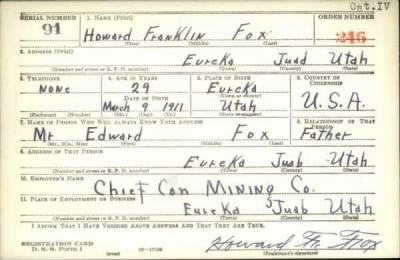 Cat. IV
SERIAL NUMBER 1. NAME (Print) ORDER NUMBER
91 Howard Franklin Fox 246
(First) (Middle) (Last)
2. ADDRESS (Print)
Eureka Juad Utah
(Number and street or R. F. D. number) (Town) (County) (State)
3. TELEPHONE 4. AGE IN YEARS 5. PLACE OF BIRTH 6. COUNTRY OF CITIZENSHIP
None 29 Eureka
DATE OF BIRTH (Town or county)
March 9 1911 Utah U.S.A.
(Exchange) (Number) (Mo.) (Day) (Yr.) (State or country)
7. NAME OF PERSON WHO WILL ALWAYS KNOW YOUR ADDRESS 8. RELATIONSHIP OF THAT PERSON
Mr Edward Fox Father
(Mr., Mrs., Miss) (First) (Middle) (Last)
9. ADDRESS OF THAT PERSON
Eureka Juab Utah
(Number and street or R. F. D. number) (Town) (County) (State)
10. EMPLOYER'S NAME
Chief Con Mining Co.
11. PLACE OF EMPLOYMENT OR BUSINESS
Eureka Juab Utah
(Number and street or R. F. D. number) (Town) (County) (State)
I AFFIRM THAT I HAVE VERIFIED ABOVE ANSWERS AND THAT THEY ARE TRUE.
REGISTRATION CARD
D. S. S. Form 1 (over) Howard Fr. Fox
(Registrant's signature)